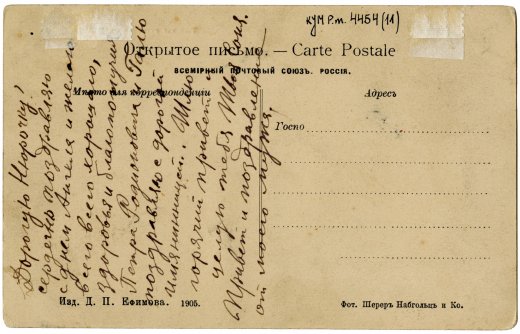 КУМ Р.т. 4454 (11)
Открытое письмо. — Carte Postale
ВСЕМІРНЫЙ ПОЧТОВЫЙ СОЮЗЪ. РОССІЯ.
Мѣсто для корреспонденціи
Адресъ
Госпо
Дорогую Шурочку,
сердечно поздравляю
съ днем Ангела и желаю
всего всего хорошаго,
здоровья и благополучия
Петра Родионовича Галю
поздравляю с дорогой
имянинницей. Шлю
горячий привет и
целую тебя Твоя Соня.
Привет и поздравление
от моего мужа,
Изд. Д. П. Ефимова. 1905.
Фот. Шереръ Набгольцъ и Ко.